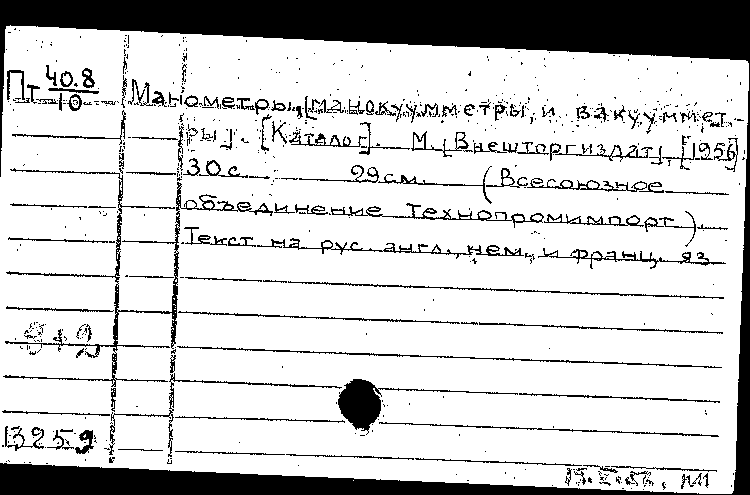 Пт 40.8
10
Манометры, [манокуумметры, и вакууммет-
ры]. [Каталог]. М. [Внешторгиздат], [1956]
30 с. 29 см. (Всесоюзное
объединение Технопромимпорт).
Текст на рус. англ., нем., и франц. яз
9+2
13259